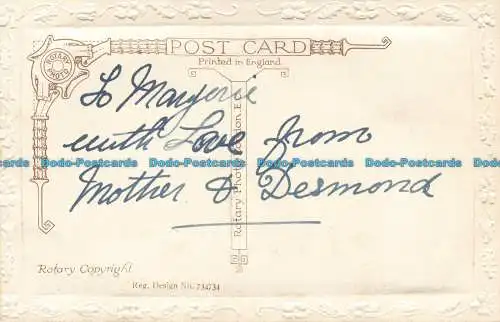 POST CARD
Printed in England.
ROTARY PHOTO
To Marjorie
with Love from
Dodo-Postcards Dodo-Postcards Dodo-Postcards Dodo-Postcards
Mother & Desmond
Rotary Photographic
Rotary Copyright
Reg. Design No. 734734